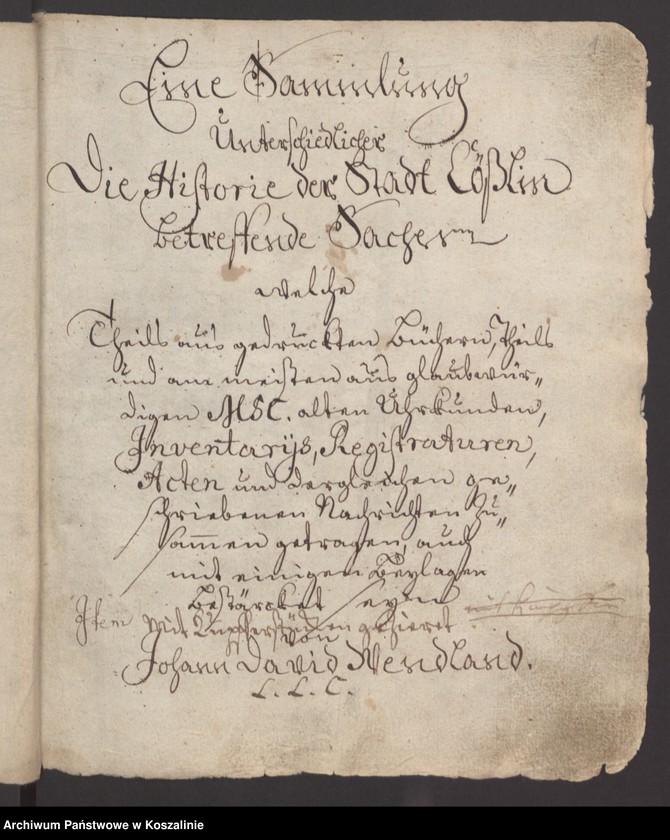 1
Eine Sammlung
Unterschiedlicher
Die Historie der Stadt Cößlin
betreffende Sachen
welche
Theils aus gedruckten Büchern, theils
und am meisten aus glaubwür„
digen MSC. alten Uhrkunden,
Inventarijs, Registraturen,
Acten und dergleichen ge„
schriebenen Nachrichten Zu„
sam̄en getragen, auch
mit einigen Beylagen
bestärcket seyn
Item mit Kupfferstücken gezieret
von
Johann David Wendland.
L. L. C.
Archiwum Państwowe w Koszalinie